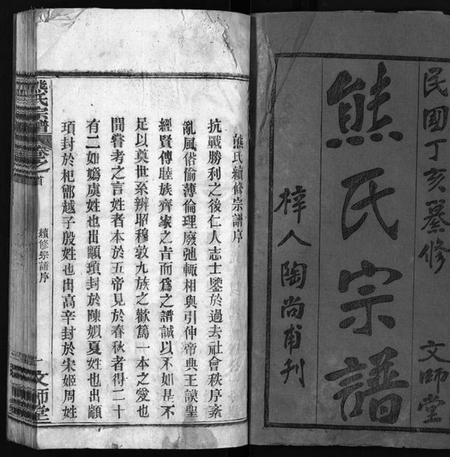 民國丁亥纂修
文師堂
熊氏宗譜
梓人陶尚甫刊
熊氏續修宗譜序
抗戰勝利之後仁人志士鑒於過去社會秩序紊
亂風俗偷薄倫理廢弛輒相與引伸帝典王謨聖
經賢傳睦族齊家之旨而為之譜誠以不如是不
足以奠世系辨昭穆敦九族之歡篤一本之愛也
間嘗考之言姓者本於五帝見於春秋者得二十
有二如媯虞姓也出顓頊封於陳姒夏姓也出顓
頊封於杞鄫越子殷姓也出高辛封於宋姬周姓
熊氏宗譜
卷之首
續修宗譜序
一
文師堂